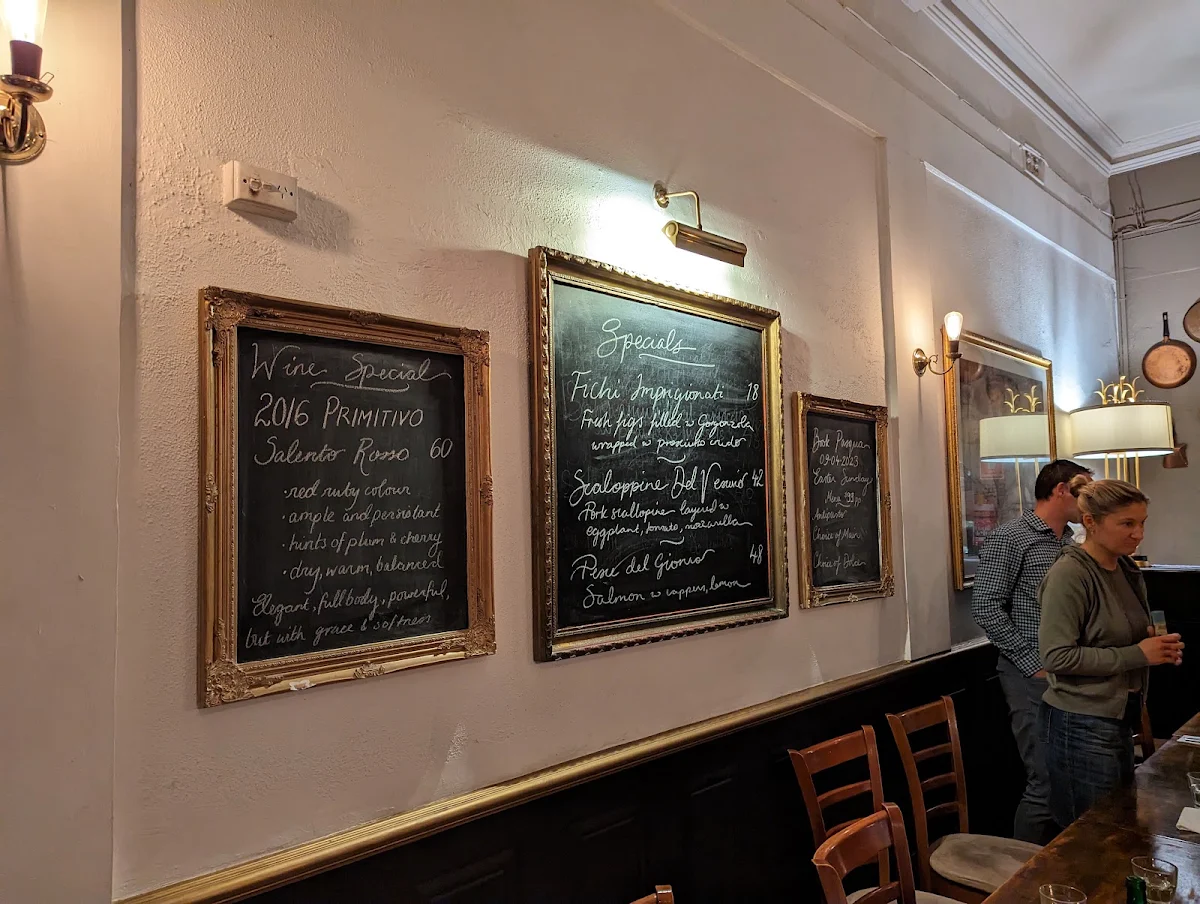 Wine Special
2016 PRIMITIVO
Salento Rosso 60
· red ruby colour
· ample and persistant
· hints of plum & cherry
· dry, warm, balanced
Elegant, full body, powerful,
but with grace & softness
Specials
Fichi Imprigionati 18
Fresh figs filled w Gorgonzola
wrapped w prosciutto crudo
Scaloppine Del Vesuvio 42
Pork scallopine layered w
eggplant, tomato, mozzarella
Pesce del Giorno 48
Salmon w cappers, lemon
Pasqua
09-04-2023
Easter Sunday
Menu $99 pp
Antipasto
Choice of Main
Choice of